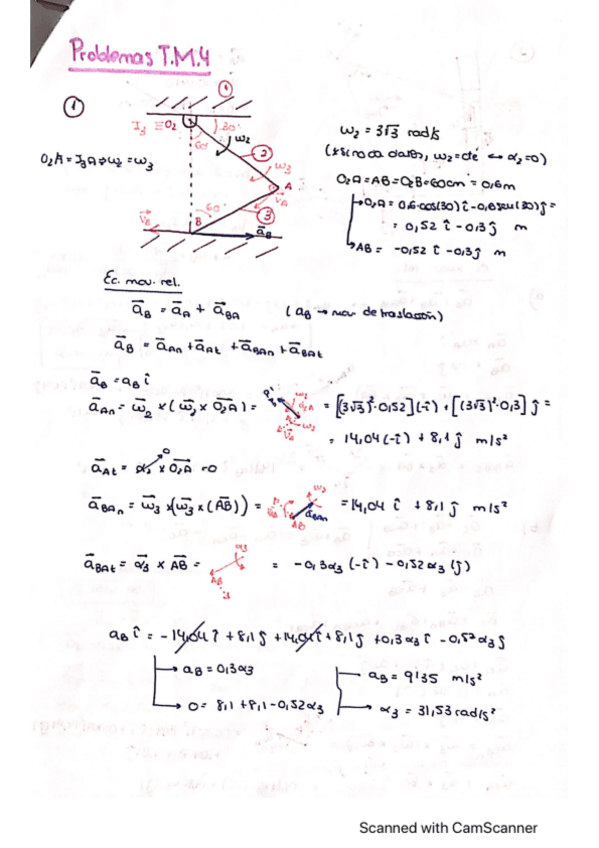 Problemas T.M.4
①
①
I₃ ≡ O₂
30°
60
ω₂
②
O₂A = I₃A ⇒ ω₂ = ω₃
ω₃
A
V⃗A
③
60°
V⃗B
B
a⃗B
ω₂ = 3√3 rad/s
(*si no da datos, ω₂ = cte ↔ α₂=0)
O₂A = AB = O₂B = 60cm = 0,6m
O₂A = 0,6·cos(30) î - 0,6 sen(30) ĵ =
= 0,52 î - 0,3 ĵ m
AB = -0,52 î - 0,3 ĵ m
Ec. mov. rel.
a⃗B = a⃗A + a⃗BA (aB → mov. de traslación)
a⃗B = a⃗An + a⃗At + a⃗BAn + a⃗BAt
a⃗B = aB î
a⃗An = ω⃗₂ × (ω⃗₂ × O₂A) = = [(3√3)²·0,52](-î) + [(3√3)²·0,3] ĵ =
= 14,04(-î) + 8,1 ĵ m/s²
a⃗At = α⃗₂ × O₂A = 0
a⃗BAn = ω⃗₃ × (ω⃗₃ × (AB)) = = 14,04 î + 8,1 ĵ m/s²
a⃗BAt = α⃗₃ × AB = = -0,3α₃ (-î) - 0,52 α₃ (ĵ)
aB î = -14,04 î + 8,1 ĵ + 14,04 î + 8,1 ĵ + 0,3 α₃ î - 0,52 α₃ ĵ
aB = 0,3α₃
aB = 9,35 m/s²
0 = 8,1 + 8,1 - 0,52α₃
α₃ = 31,53 rad/s²
Scanned with CamScanner